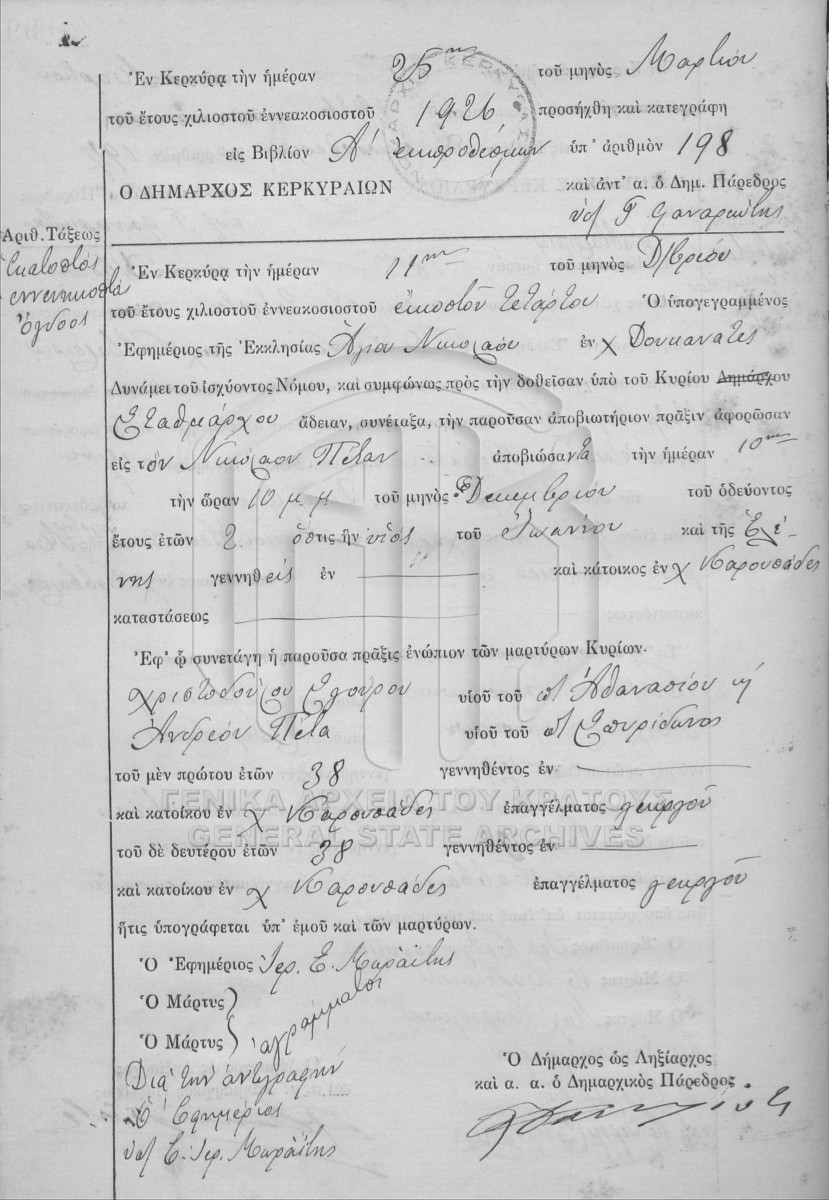 Ἐν Κερκύρᾳ τὴν ἡμέραν 25ην τοῦ μηνὸς Μαρτίου
τοῦ ἔτους χιλιοστοῦ ἐννεακοσιοστοῦ 1926 προσήχθη καὶ κατεγράφη
εἰς Βιβλίον Α′ ἐκπροθέσμων ὑπ' ἀριθμὸν 198
Ο ΔΗΜΑΡΧΟΣ ΚΕΡΚΥΡΑΙΩΝ καὶ ἀντ' α. ὁ Δημ. Πάρεδρος
Ἀριθ. Τάξεως
ἑκατοστὸς
ἐννενηκοστὸς
ὄγδοος
Ἐν Κερκύρᾳ τὴν ἡμέραν 11ην τοῦ μηνὸς Δ/βρίου
τοῦ ἔτους χιλιοστοῦ ἐννεακοσιοστοῦ εἰκοστοῦ τετάρτου Ὁ ὑπογεγραμμένος
Ἐφημέριος τῆς Ἐκκλησίας Ἁγίου Νικολάου ἐν χ Δουκανάτες
Δυνάμει τοῦ ἰσχύοντος Νόμου, καὶ συμφώνως πρὸς τὴν δοθεῖσαν ὑπὸ τοῦ Κυρίου Δημάρχου
Σταθμάρχου ἄδειαν, συνέταξα, τὴν παροῦσαν ἀποβιωτήριον πρᾶξιν ἀφορῶσαν
εἰς τὸν Νικόλαον Πέταν ἀποβιώσαντα τὴν ἡμέραν 10ην
τὴν ὥραν 10 μ.μ τοῦ μηνὸς Δεκεμβρίου τοῦ ὁδεύοντος
ἔτους ἐτῶν 2 ὅστις ἦν υἱὸς τοῦ Ἰωάννου καὶ τῆς Ἑλέ
νης γεννηθεὶς ἐν καὶ κάτοικος ἐν χ Καρουσάδες
καταστάσεως
Ἐφ' ᾧ συνετάγη ἡ παροῦσα πρᾶξις ἐνώπιον τῶν μαρτύρων Κυρίων.
Χριστοδούλου Σγούρου υἱοῦ τοῦ Ἀθανασίου
Ἀνδρέου Πέτα υἱοῦ τοῦ Σπυρίδωνος
τοῦ μὲν πρώτου ἐτῶν 38 γεννηθέντος ἐν
ΓΕΝΙΚΑ ΑΡΧΕΙΑ ΤΟΥ ΚΡΑΤΟΥΣ
καὶ κατοίκου ἐν χ Καρουσάδες ἐπαγγέλματος γεωργοῦ
GENERAL STATE ARCHIVES
τοῦ δὲ δευτέρου ἐτῶν 38 γεννηθέντος ἐν
καὶ κατοίκου ἐν χ Καρουσάδες ἐπαγγέλματος γεωργοῦ
ἥτις ὑπογράφεται ὑπ' ἐμοῦ καὶ τῶν μαρτύρων.
Ὁ Ἐφημέριος Ἱερ. Ε. Μωραΐτης
Ὁ Μάρτυς
ἀγράμματοι
Ὁ Μάρτυς
Διὰ τὴν ἀντιγραφήν
Ὁ Ἐφημέριος
Ε. Ἱερ. Μωραΐτης
Ὁ Δήμαρχος ὡς Ληξίαρχος
καὶ α. α. ὁ Δημαρχικὸς Πάρεδρος